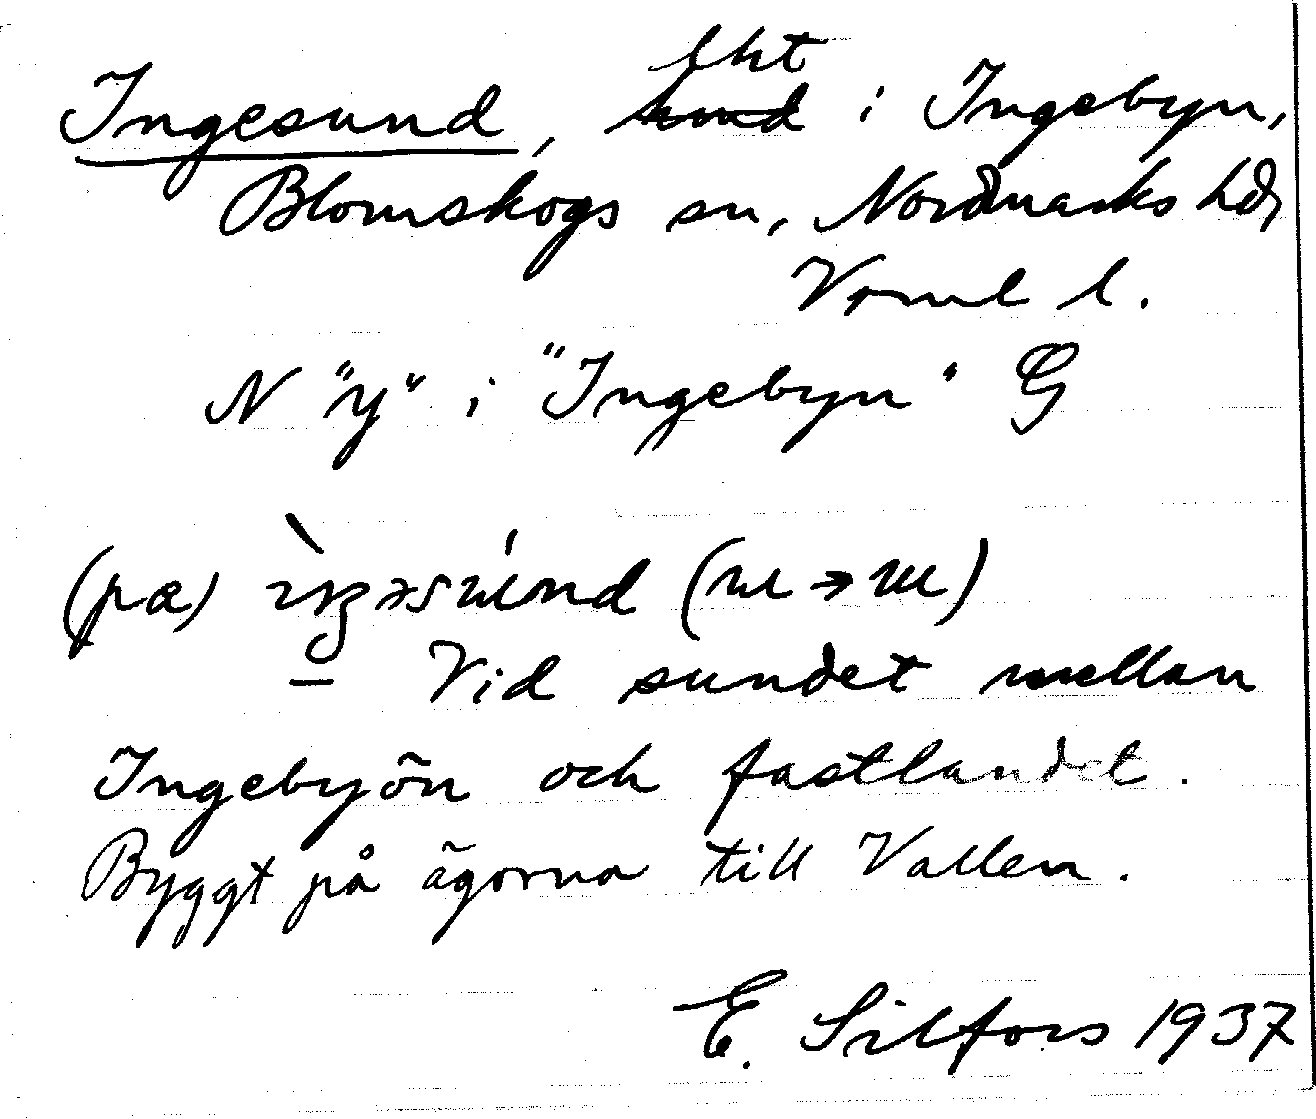 Ingesund, lht i Ingebyn,
Blomskogs sn, Nordmarks hd,
Vrml l.
N "y" i "Ingebyn" G
(pa)
Vid sundet mellan
Ingebyön och fastlandet.
Byggt på ägorna till Vallen.
E. Silfors 1937